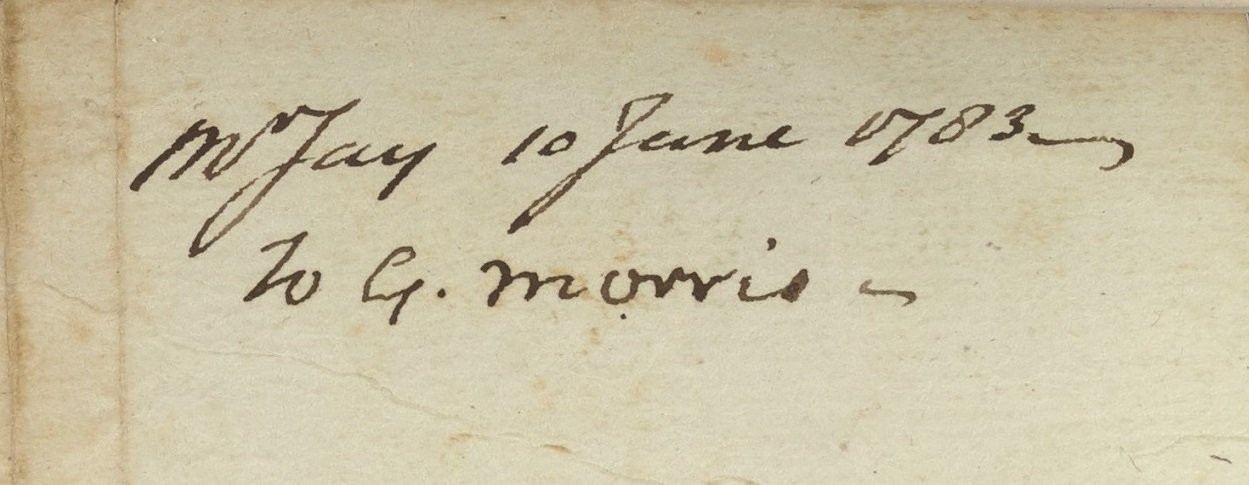 Mr Jay 10 June 1783
to G. Morris -